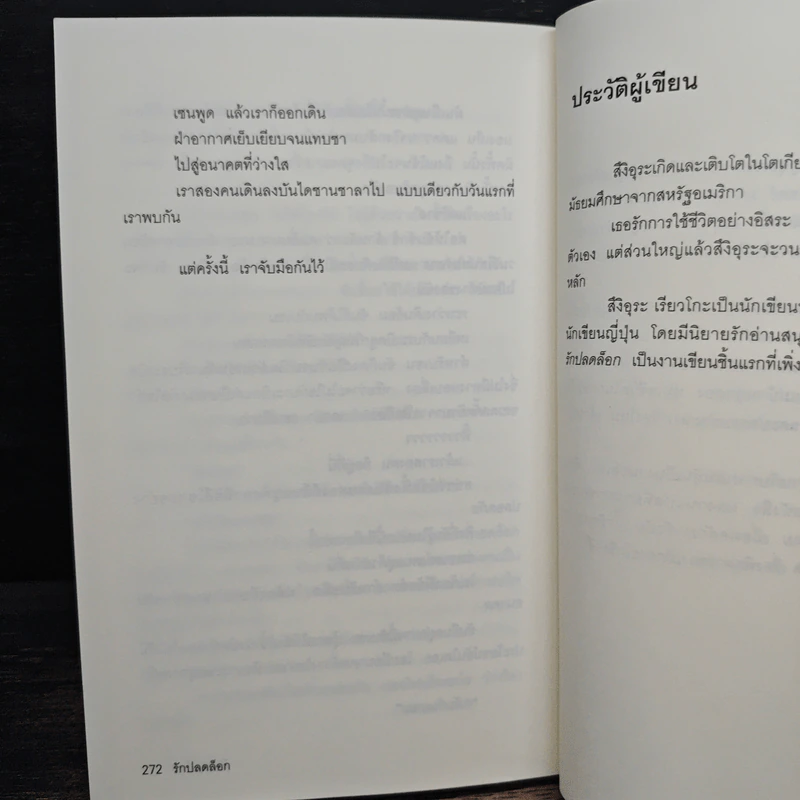 เซนพูด แล้วเราก็ออกเดิน
ฝ่าอากาศเย็บเยียบจนแทบชา
ไปสู่อนาคตที่ว่างใส
เราสองคนเดินลงบันไดซานซาลาไป แบบเดียวกับวันแรกที่
เราพบกัน
แต่ครั้งนี้ เราจับมือกันไว้
272 รักปลดล็อก
ประวัติผู้เขียน
สึงิอุระเกิดและเติบโตในโตเกีย
มัธยมศึกษาจากสหรัฐอเมริกา
เธอรักการใช้ชีวิตอย่างอิสระ
ตัวเอง แต่ส่วนใหญ่แล้วสึงิอุระจะวน
หลัก
สึงิอุระ เรียวโกะเป็นนักเขียน
นักเขียนญี่ปุ่น โดยมีนิยายรักอ่านสนุ
รักปลดล็อก เป็นงานเขียนชิ้นแรกที่เพิ่ง